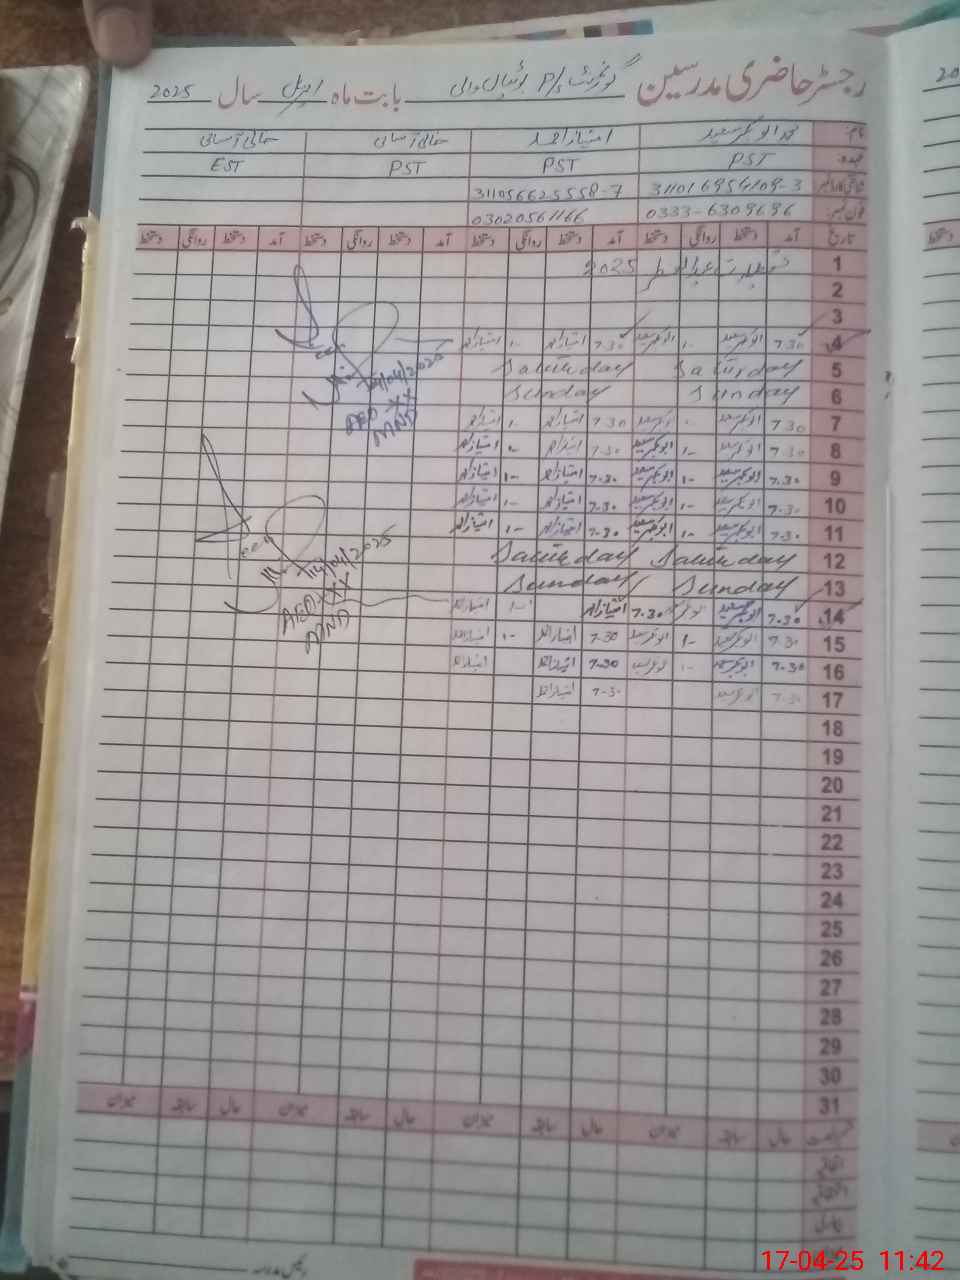 رجسٹر حاضری مدرسین گورنمنٹ P/S بابت ماہ اپریل سال 2025
نام محمد ابوبکر سعید امتیاز احمد خالی آسامی خالی آسامی
عہدہ PST PST PST EST
شناختی کارڈ نمبر 31101 6956109-3 311056625558-7
فون نمبر 0333-6309696 03020561166
تاریخ آمد دستخط روانگی دستخط آمد دستخط روانگی دستخط آمد دستخط روانگی دستخط آمد دستخط روانگی دستخط
1 تعطیلات عیدالفطر 2025
2
3
4 7.30 ابوبکر سعید 1- ابوبکر سعید 7.30 امتیاز احمد 1- امتیاز احمد
5 Saturday Saturday
6 Sunday Sunday
7 7.30 ابوبکر سعید 1- ابوبکر سعید 7.30 امتیاز احمد 1- امتیاز احمد
8 7.30 ابوبکر سعید 1- ابوبکر سعید 7.30 امتیاز احمد 1- امتیاز احمد
9 7.30 ابوبکر سعید 1- ابوبکر سعید 7.30 امتیاز احمد 1- امتیاز احمد
10 7.30 ابوبکر سعید 1- ابوبکر سعید 7.30 امتیاز احمد 1- امتیاز احمد
11 7.30 ابوبکر سعید 1- ابوبکر سعید 7.30 امتیاز احمد 1- امتیاز احمد
12 Saturday Saturday
13 Sunday Sunday
14 7.30 ابوبکر سعید ابوبکر سعید 7.30 امتیاز احمد 1- امتیاز احمد
15 7.30 ابوبکر سعید 1- ابوبکر سعید 7.30 امتیاز احمد 1- امتیاز احمد
16 7.30 ابوبکر سعید 1- ابوبکر سعید 7.30 امتیاز احمد امتیاز احمد
17 7.30 ابوبکر سعید 7.30 امتیاز احمد
18
19
20
21
22
23
24
25
26
27
28
29
30
31
14/04/2025
AEO-XX
MND
14/04/2025
AEO-XX
MND
حال سابقہ میزان حال سابقہ میزان حال سابقہ میزان حال سابقہ میزان
اتفاقیہ
رئیس مدرسہ
17-04-25 11:42